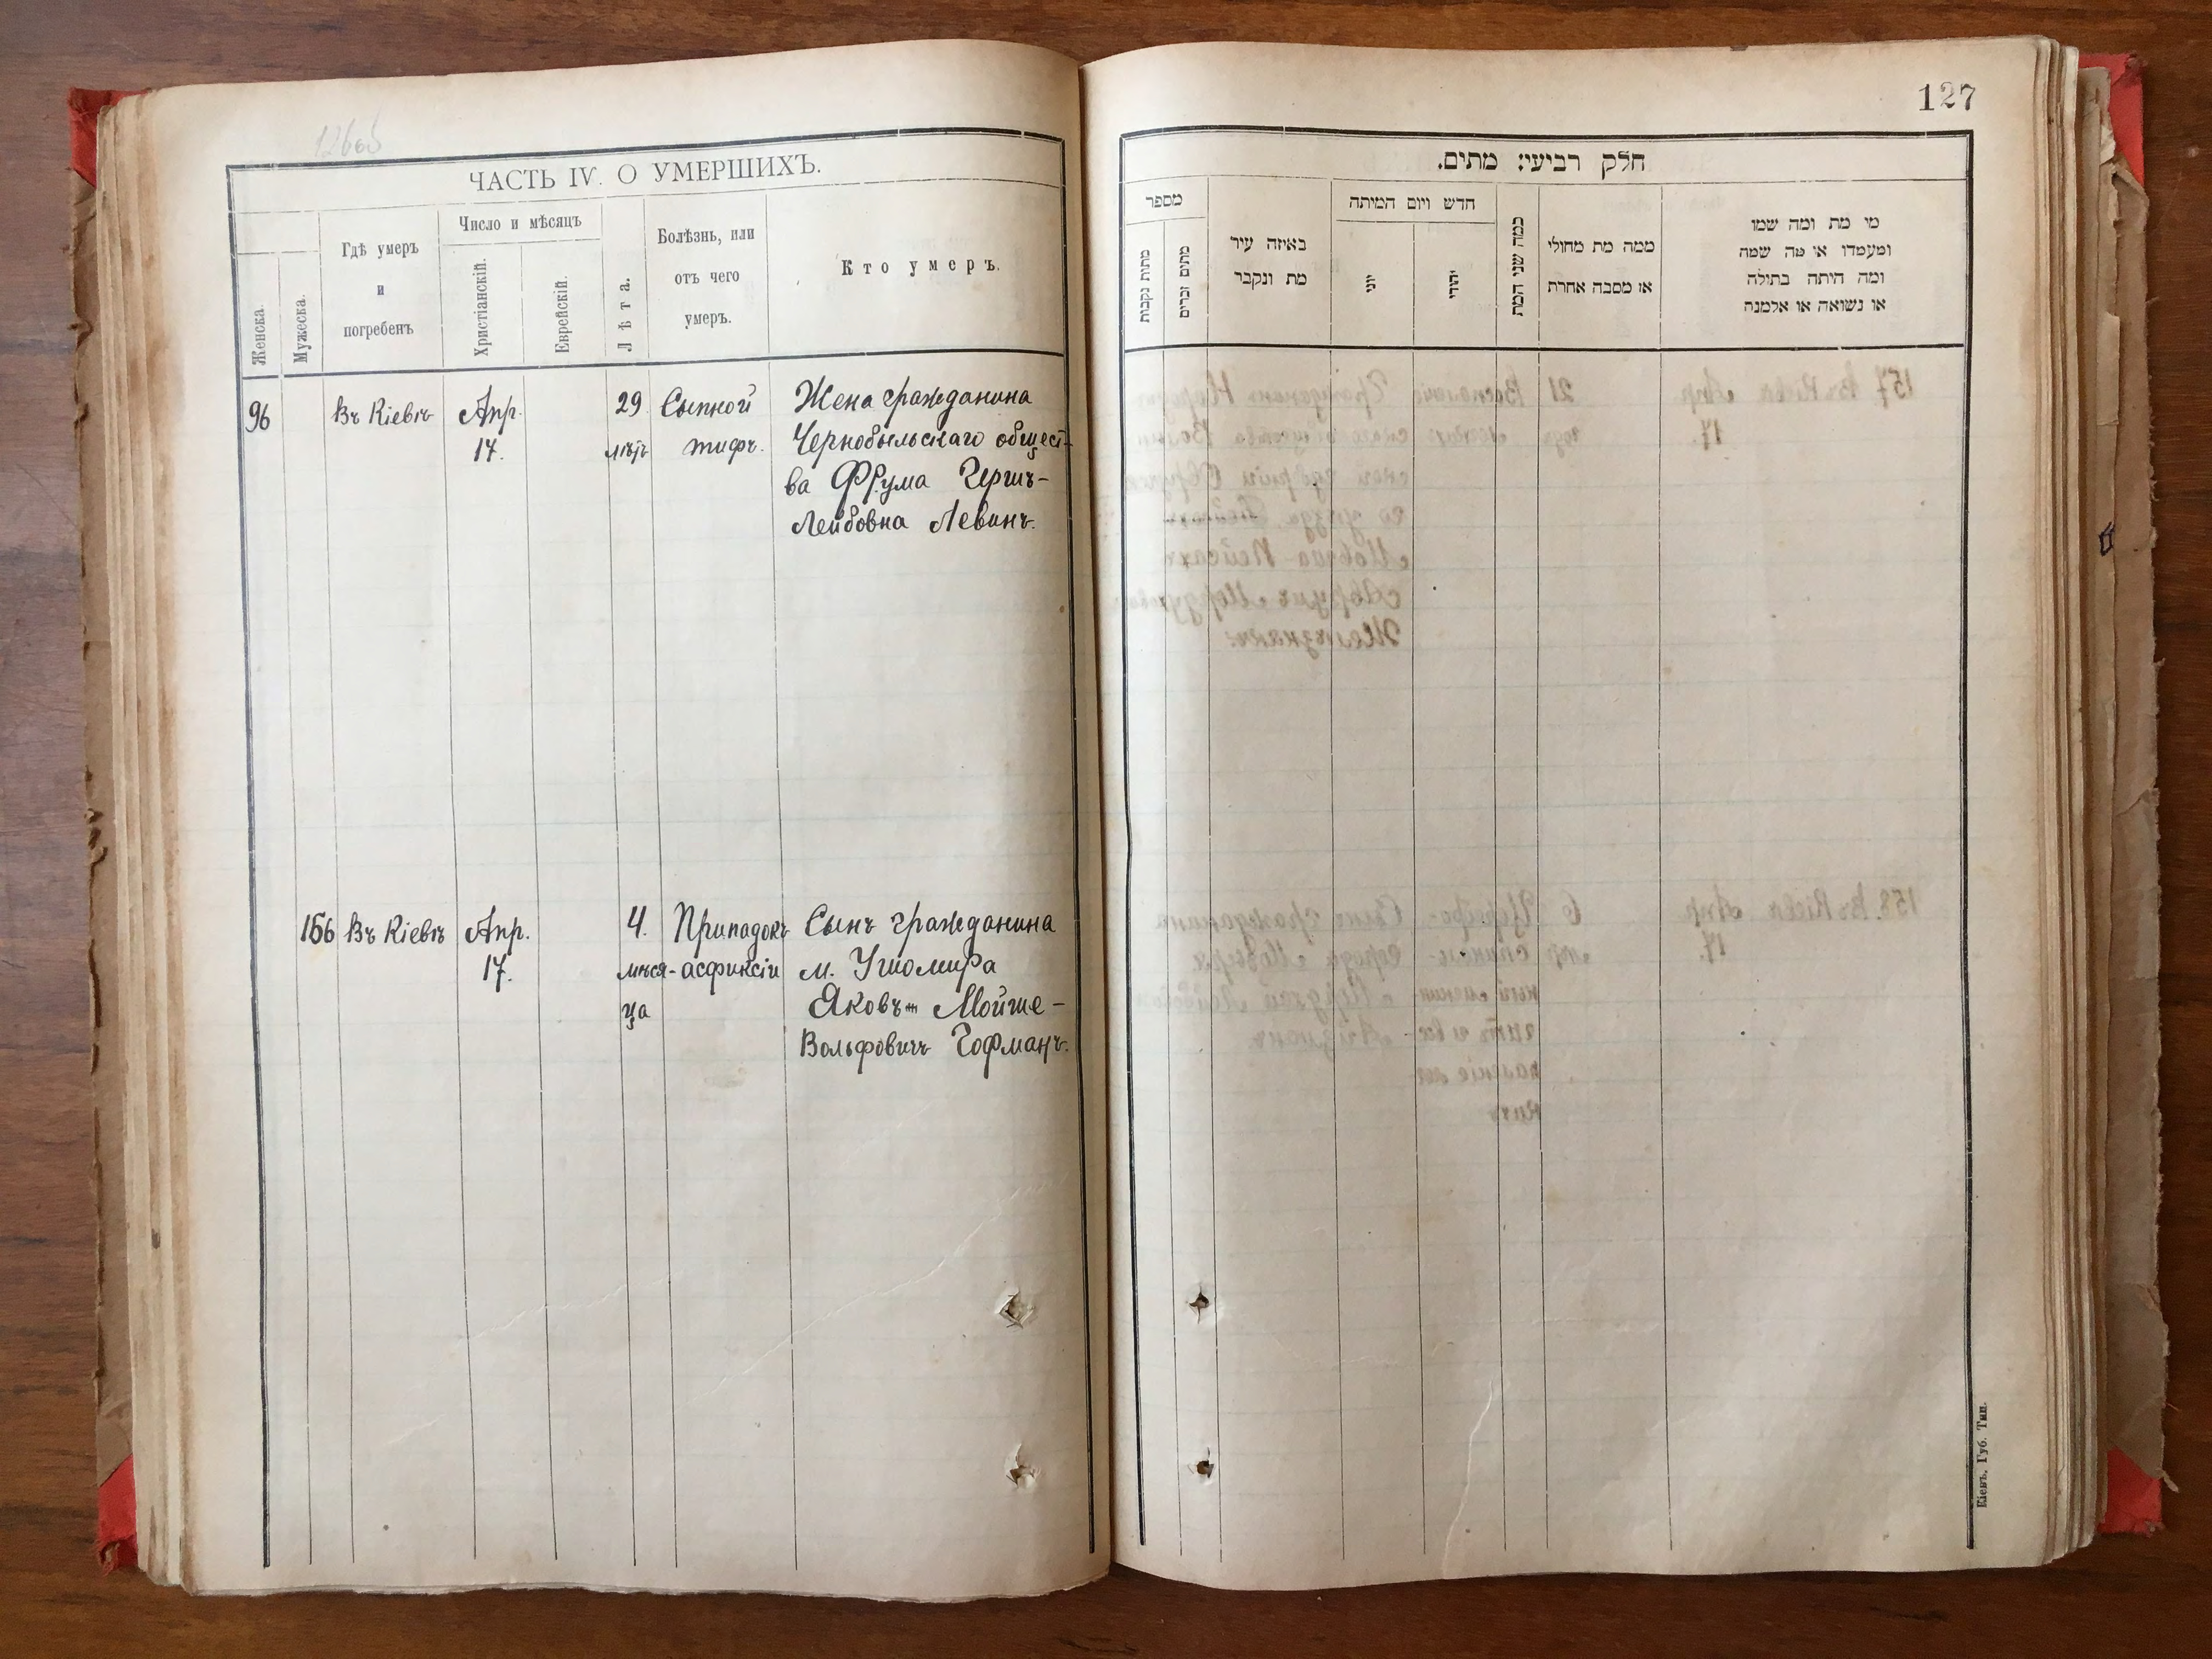 126об
ЧАСТЬ IV. О УМЕРШИХЪ.
Женска.
Мужеска.
Гдѣ умеръ
и
погребенъ
Число и мѣсяцъ
Христіанскій.
Еврейскій.
Лѣта.
Болѣзнь, или
отъ чего
умеръ.
Кто умеръ.
96
Въ Кіевѣ
Апр.
17.
29
лѣтъ
Сыпной
тифъ.
Жена гражданина
Чернобыльскаго общест-
ва Фрума Гершъ-
Лейбовна Левинъ.
156
Въ Кіевѣ
Апр.
17.
4.
мѣся-
ца
Припадокъ
асфиксіи
Сынъ гражданина
м. Ушомира
Яковъ Мойше-
Вольфовичъ Гофманъ.
127
חלק רביעי: מתים.
מספר
מתות נקבות
מתים זכרים
באיזה עיר
מת ונקבר
חדש ויום המיתה
יוני
יהודי
כמה שני המת
ממה מת מחולי
או מסבה אחרת
מי מת ומה שמו
ומעמדו או מה שמה
ומה היתה בתולה
או נשואה או אלמנה
Кіевъ, Губ. Тип.